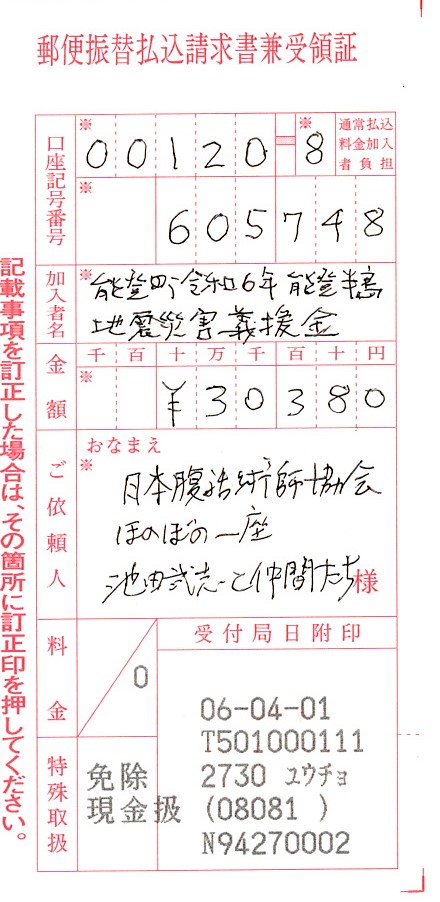 郵便振替払込請求書兼受領証
口座記号番号
※
00120-8
※
通常払込
料金加入
者負担
※
605748
加入者名
※
能登町令和6年能登半島
地震災害義援金
金額
千百十万千百十円
※
¥30380
ご依頼人
おなまえ
※
日本腹話術師協会
ほのぼの一座
池田武志と仲間たち様
料金
0
受付局日附印
06-04-01
T501000111
2730 ユウチョ
(08081 )
N94270002
特殊取扱
免除
現金扱
記載事項を訂正した場合は、その箇所に訂正印を押してください。